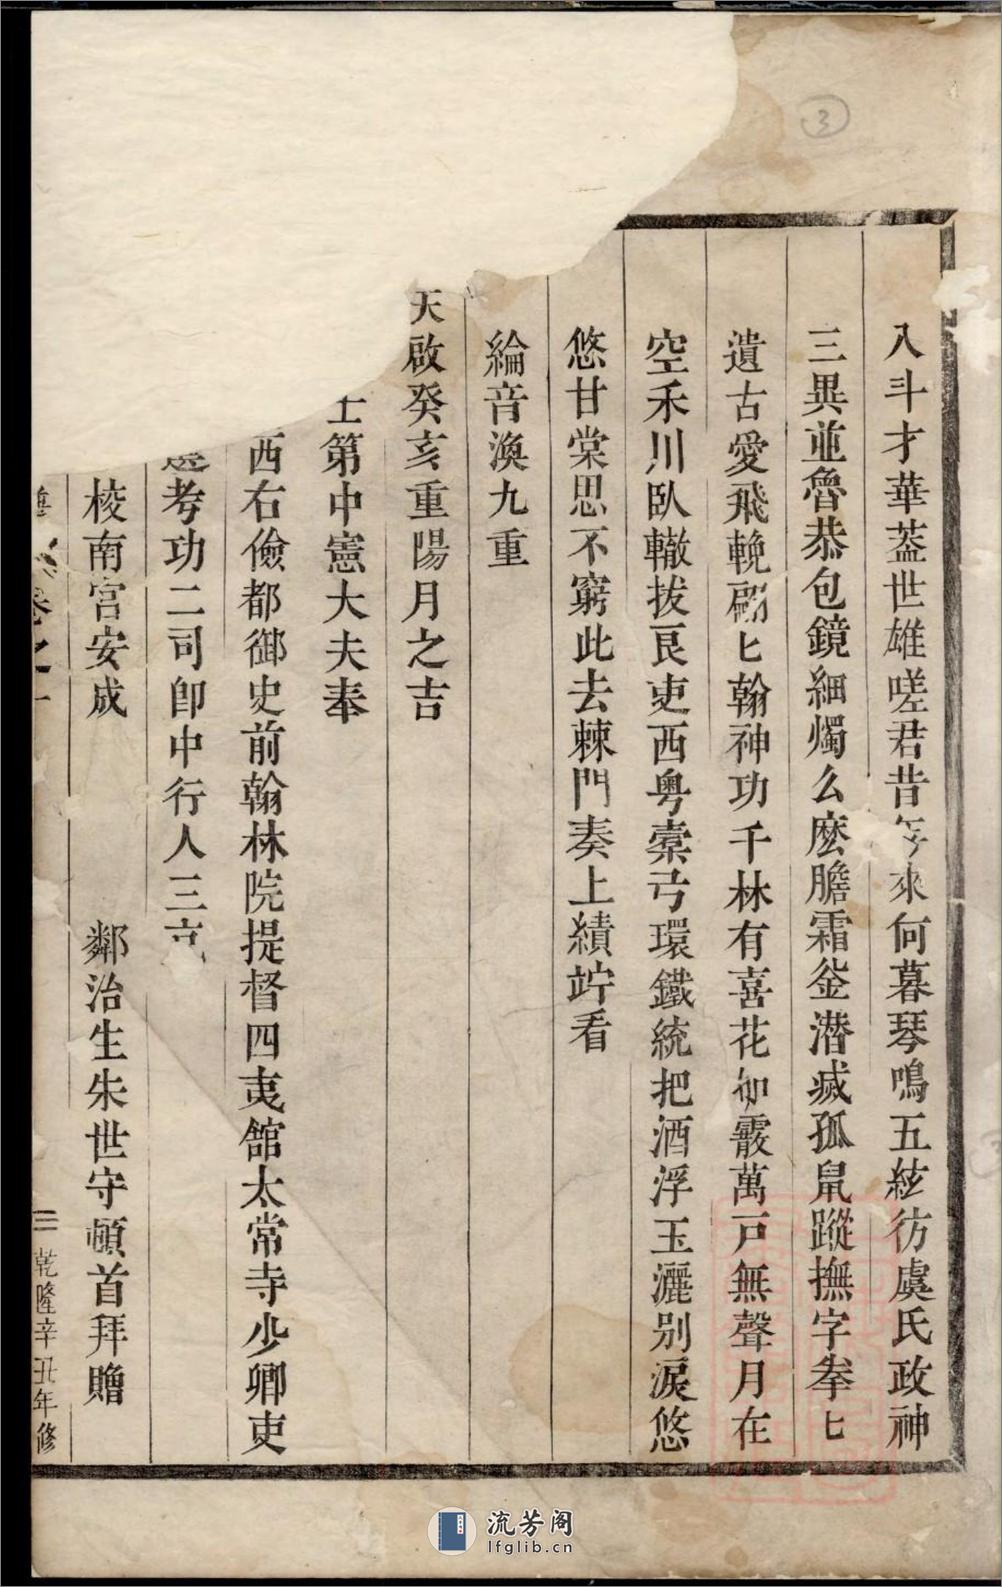 八斗才華葢世雄嗟君昔年來何暮琴鳴五絃彷虞氏政神
三異並魯恭包鏡細燭么麽膽霜釡潛滅孤鼠蹤撫字拳匕
遺古愛飛輓匕翰神功千林有喜花如霰萬戸無聲月在
空禾川臥轍拔良吏西粤櫜弓環鐵統把酒浮玉灑别淚悠
悠甘棠思不窮此去棘門奏上績竚看
綸音渙九重
天啟癸亥重陽月之吉
士第中憲大夫奉
西右儉都御史前翰林院提督四夷舘太常寺少卿吏
選考功二司郎中行人三
棱南宫安成 鄰治生朱世守頓首拜贈
卷之一
三 乾隆辛丑年修
3
流芳阁
lfglib.cn